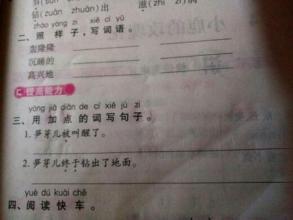 钻(zuān zhuàn)出 滋(zhī zī)润
zhào yàng zi xiě cí yǔ
二、照 样 子，写 词 语。
轰隆隆
沉睡的
高兴地
提高能力
yòng jiā diǎn de cí xiě jù zi
三、用 加 点 的 词 写 句 子 。
1.笋芽儿被叫醒了。
2.笋芽儿终于钻出了地面。
yuè dú kuài chē
四、阅 读 快 车 。